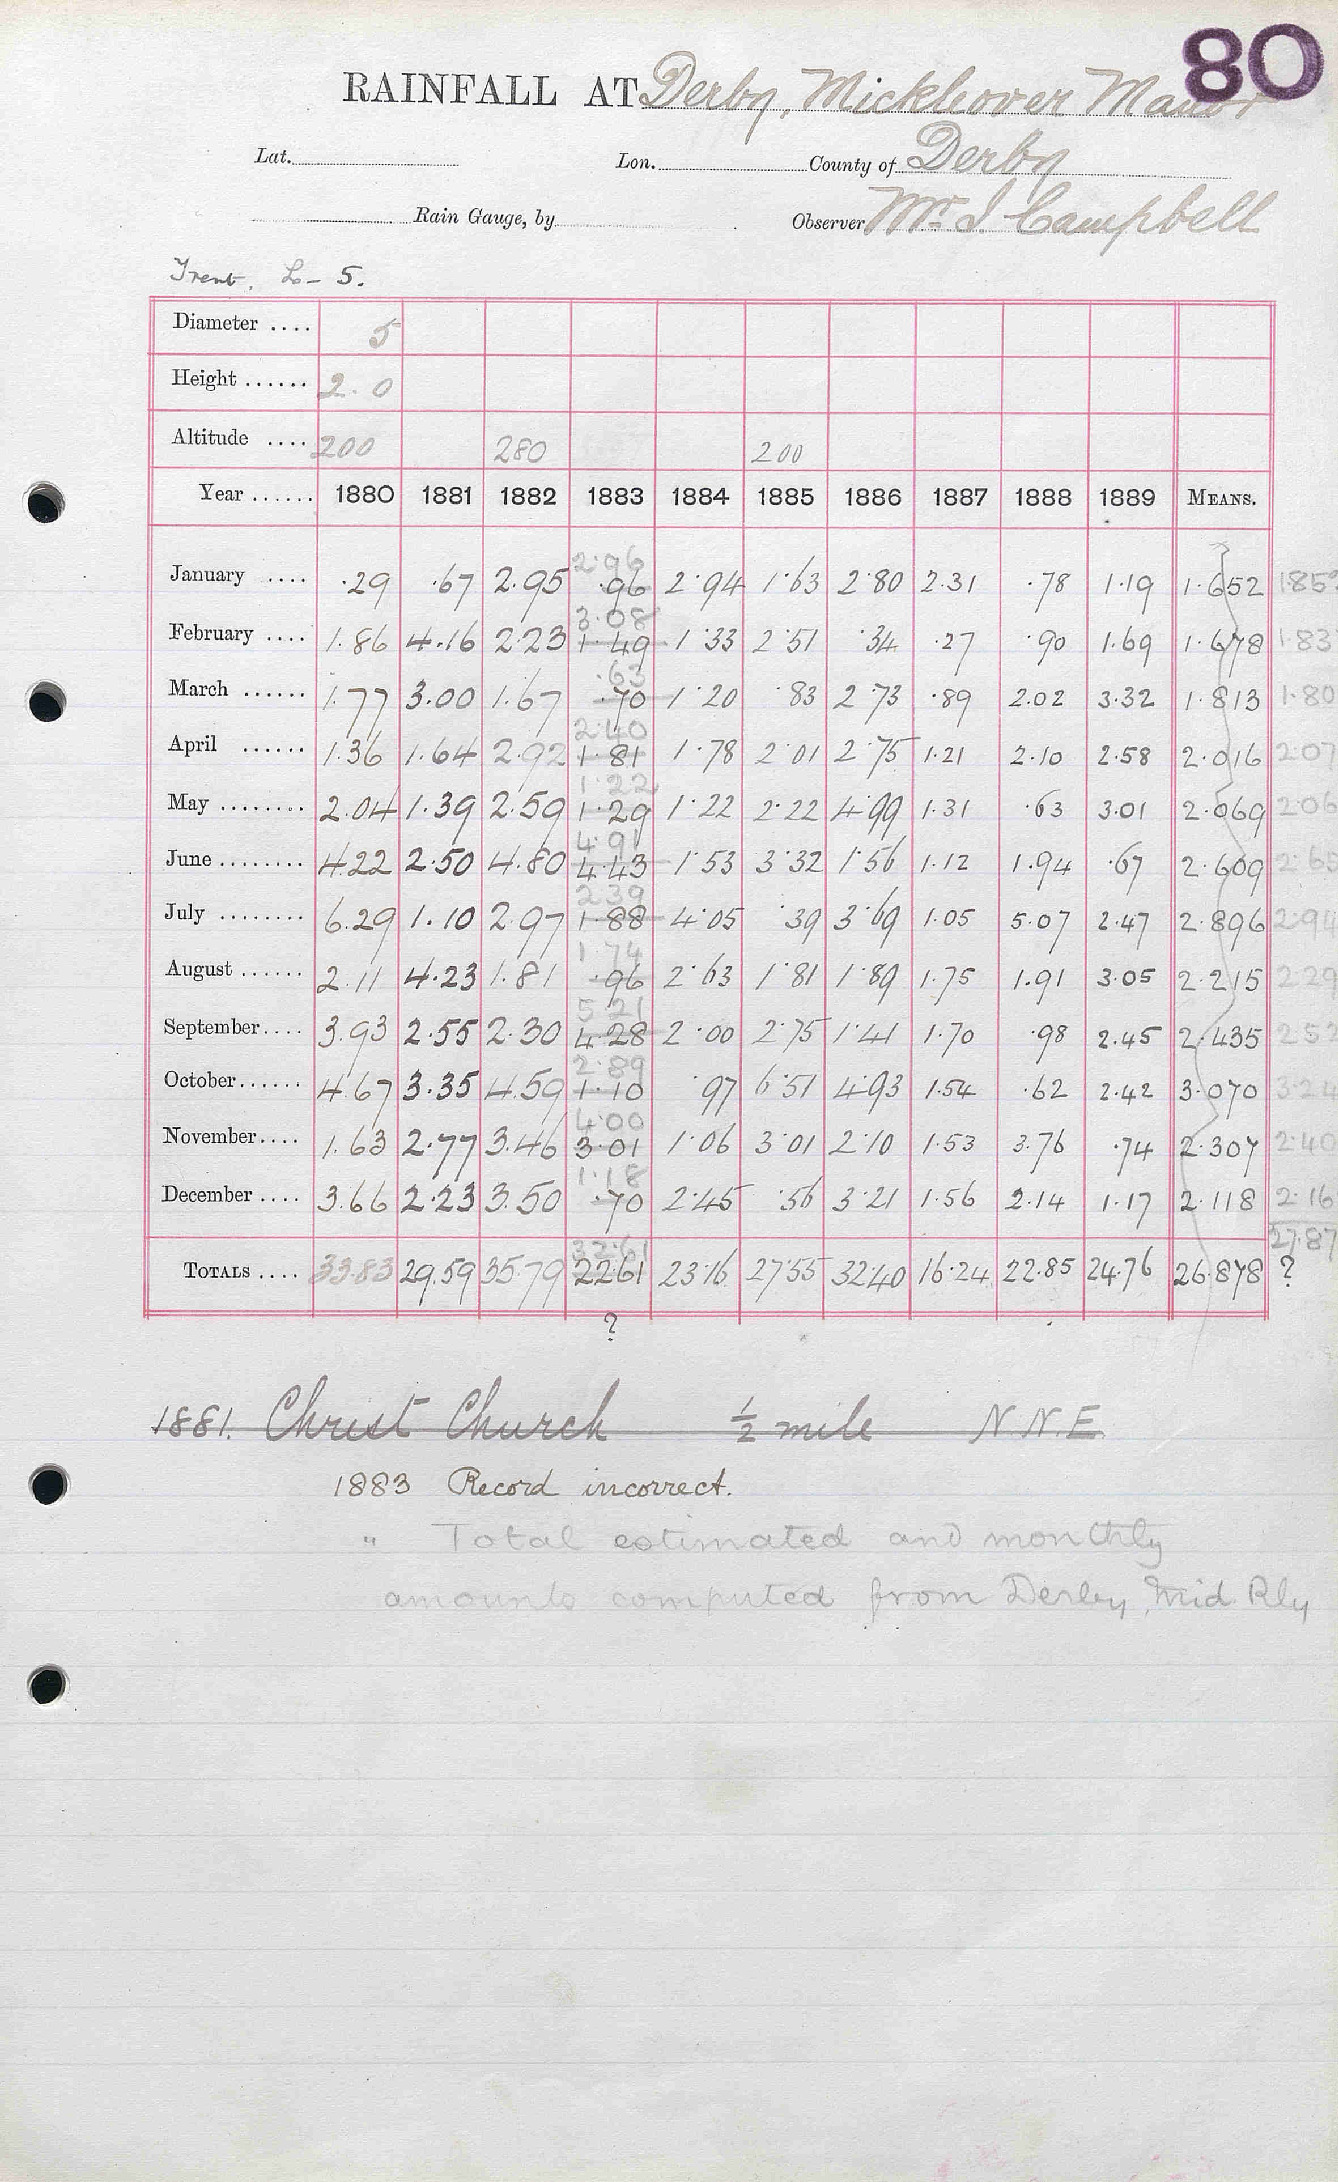 80
RAINFALL AT Derby, Mickleover Manor
Lat. Lon. County of Derby
Rain Gauge, by Observer Mr. J. Campbell
Trent. L- 5.
Diameter .... 5
Height ...... 2.0
Altitude .... 200 280 200
Year ...... 1880 1881 1882 1883 1884 1885 1886 1887 1888 1889 MEANS.
2.96
January .... .29 .67 2.95 .96 2.94 1.63 2.80 2.31 .78 1.19 1.652 1.85
3.08
February .... 1.86 4.16 2.23 1.49 1.33 2.51 .34 .27 .90 1.69 1.678 1.83
.63
March ...... 1.77 3.00 1.67 .70 1.20 .83 2.73 .89 2.02 3.32 1.813 1.80
2.40
April ...... 1.36 1.64 2.92 1.81 1.78 2.01 2.75 1.21 2.10 2.58 2.016 2.07
1.22
May ........ 2.04 1.39 2.59 1.29 1.22 2.22 4.99 1.31 .63 3.01 2.069 2.06
4.91
June ........ 4.22 2.50 4.80 4.43 1.53 3.32 1.56 1.12 1.94 .67 2.609 2.65
2.39
July ........ 6.29 1.10 2.97 1.88 4.05 .39 3.69 1.05 5.07 2.47 2.896 2.94
1.74
August ...... 2.11 4.23 1.81 .96 2.63 1.81 1.89 1.75 1.91 3.05 2.215 2.29
5.21
September.... 3.93 2.55 2.30 4.28 2.00 2.75 1.41 1.70 .98 2.45 2.435 2.52
2.89
October...... 4.67 3.35 4.59 1.10 .97 6.51 4.93 1.54 .62 2.42 3.070 3.24
4.00
November.... 1.63 2.77 3.46 3.01 1.06 3.01 2.10 1.53 3.76 .74 2.307 2.40
1.18
December .... 3.66 2.23 3.50 .70 2.45 .56 3.21 1.56 2.14 1.17 2.118 2.16
32.61 27.87
TOTALS .... 33.83 29.59 35.79 22.61 23.16 27.55 32.40 16.24 22.85 24.76 26.878 ?
?
1881. Christ Church ½ mile N.N.E.
1883 Record incorrect.
" Total estimated and monthly
amounts computed from Derby, Mid Rly